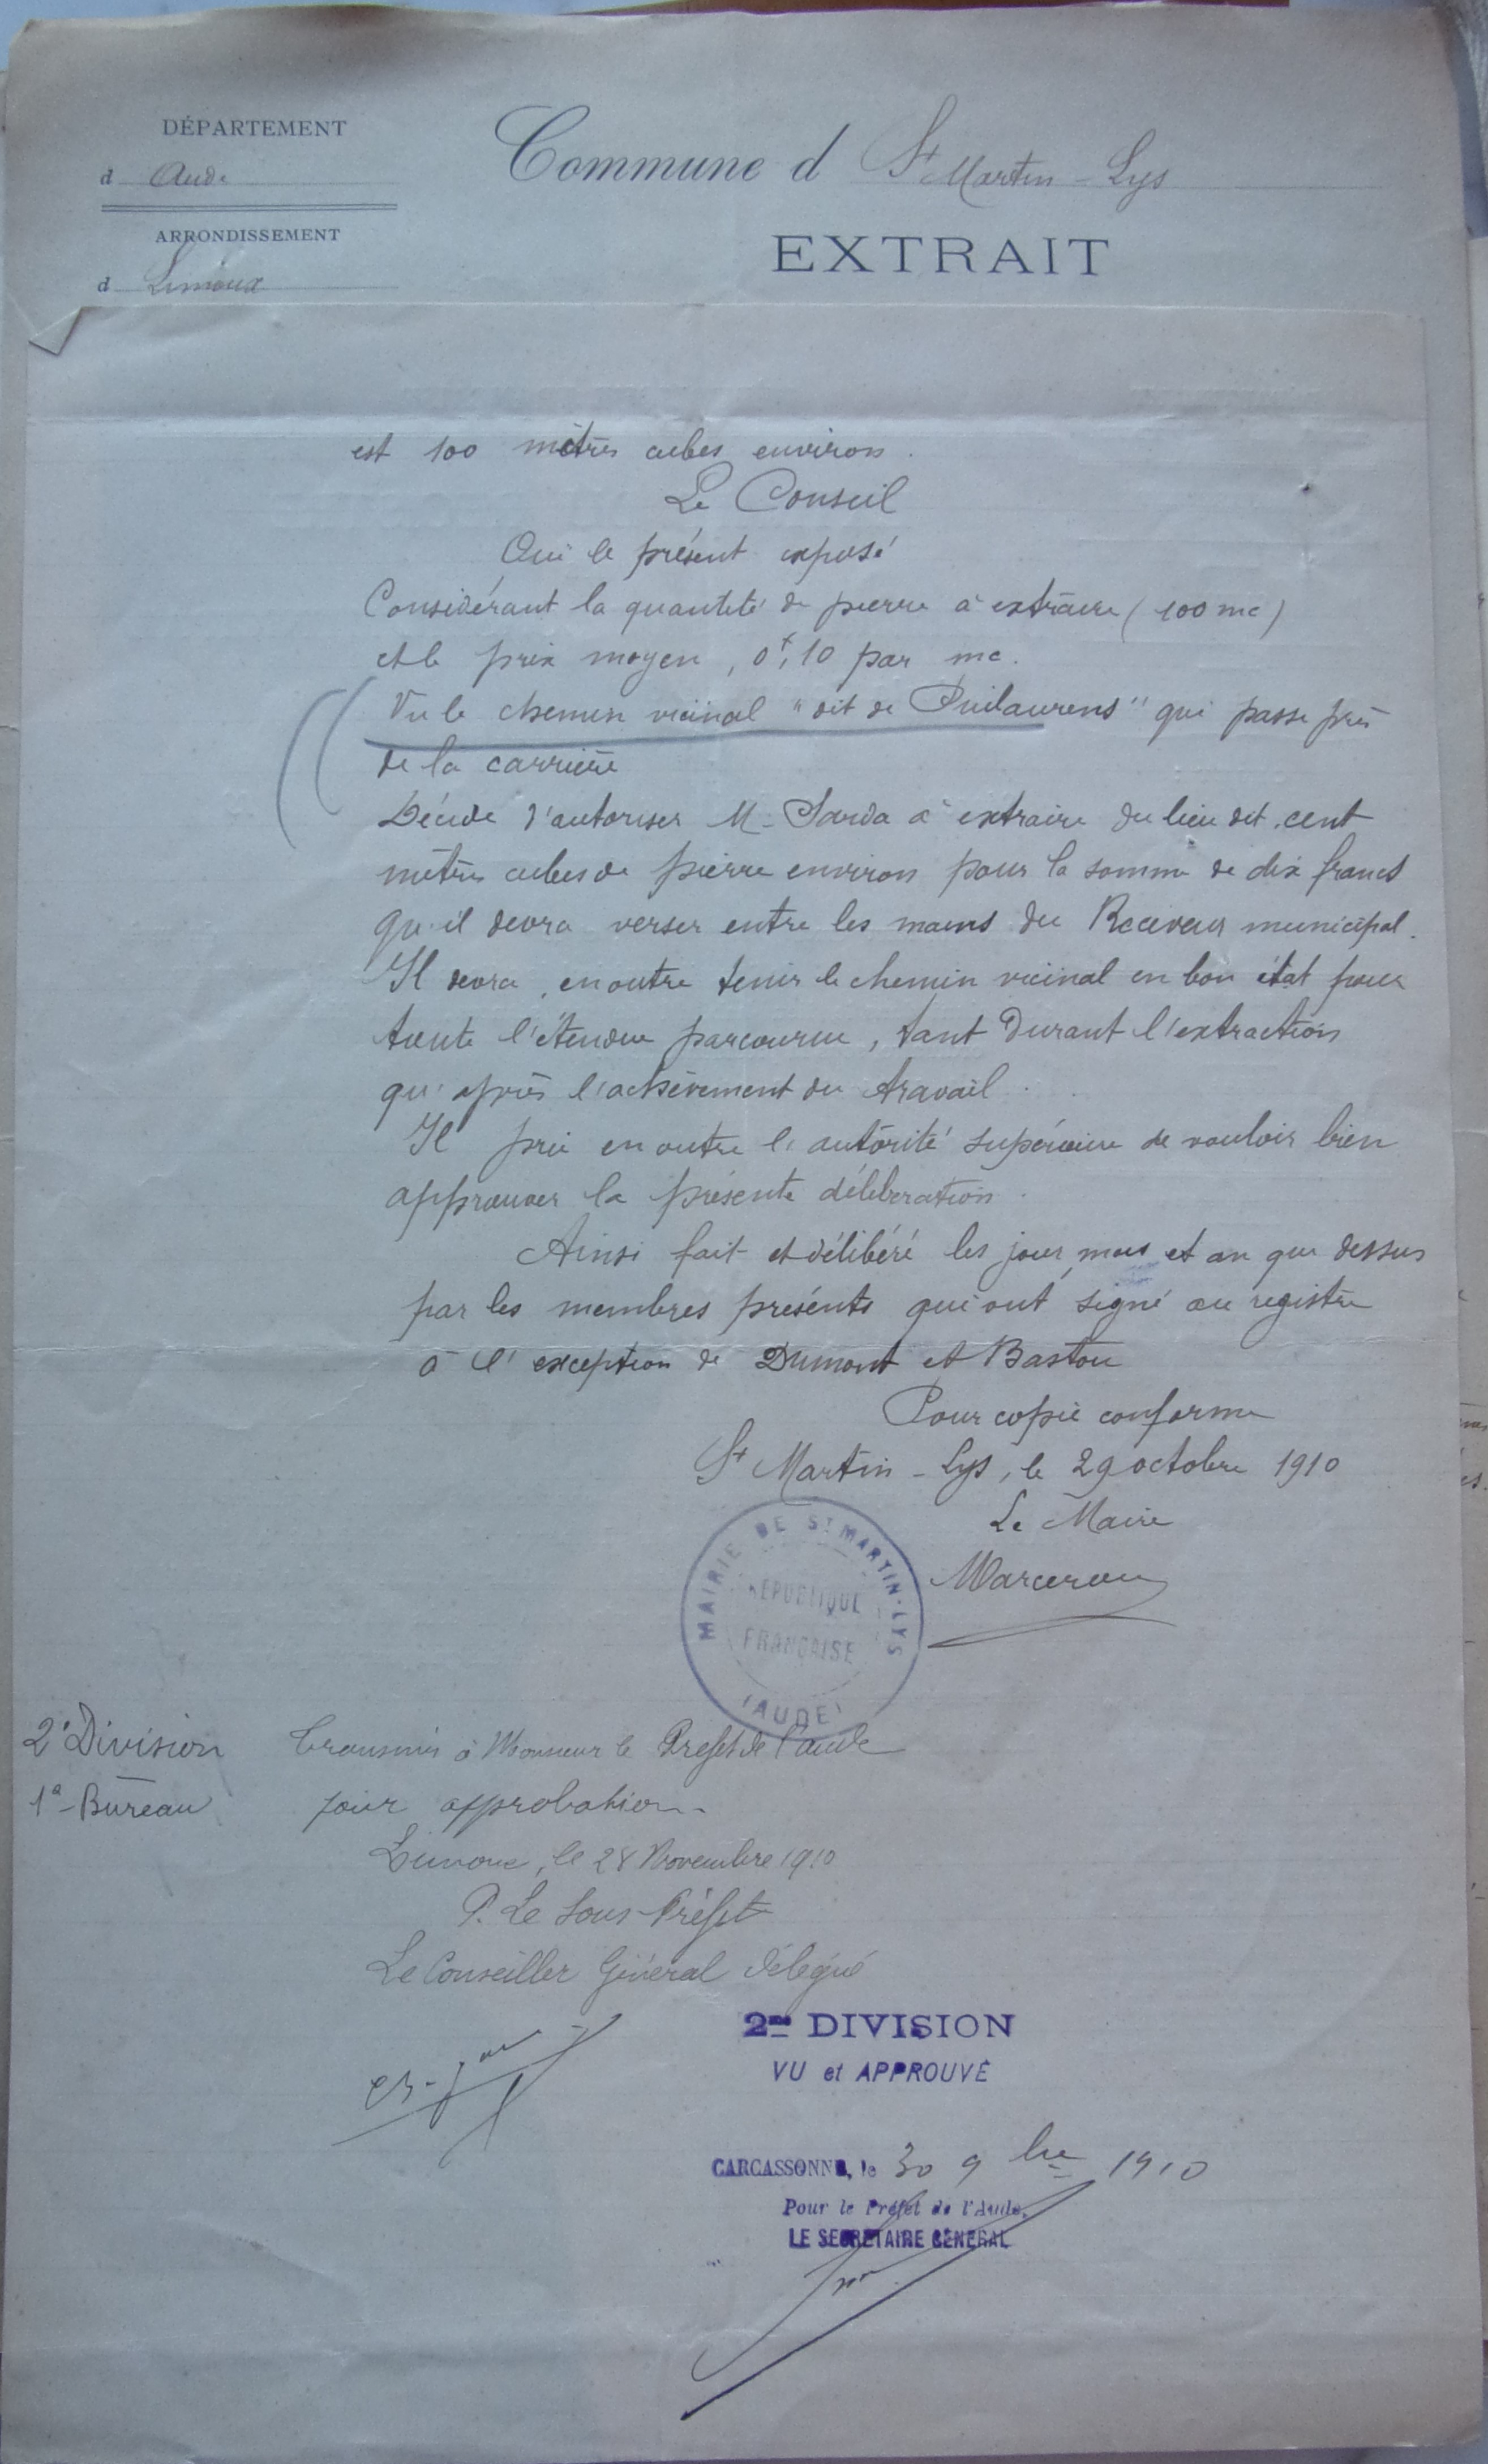 DÉPARTEMENT
d Aude
ARRONDISSEMENT
d Limoux
Commune d St Martin-Lys
EXTRAIT
est 100 mètres cubes environ.
Le Conseil
Oui le présent exposé
Considérant la quantité de pierre à extraire (100 mc)
et le prix moyen, 0f,10 par mc.
Vu le chemin vicinal "dit de Puilaurens" qui passe près
de la carrière
Décide d'autoriser M. Sarda à extraire du lieu dit, cent
mètres cubes de pierre environ pour la somme de dix francs
qu'il devra verser entre les mains du Receveur municipal.
Il devra, en outre tenir le chemin vicinal en bon état pour
toute l'étendue parcourue, tant durant l'extraction
qu'après l'achèvement du travail.
Il prie en outre l'autorité supérieure de vouloir bien
approuver la présente délibération.
Ainsi fait et délibéré les jour, mois et an que dessus
par les membres présents qui ont signé au registre
à l'exception de Dumont et Bastou
Pour copie conforme
St Martin-Lys, le 29 octobre 1910
Le Maire
Marcerou
MAIRIE DE ST MARTIN-LYS
RÉPUBLIQUE
FRANÇAISE
(AUDE)
2e Division
1e Bureau
Transmis à Monsieur le Préfet de l'Aude
pour approbation.
Limoux, le 28 Novembre 1910
P. Le Sous-Préfet
Le Conseiller Général délégué
2me DIVISION
VU et APPROUVÉ
CARCASSONNE, le 30 9bre 1910
Pour le Préfet de l'Aude,
LE SECRÉTAIRE GÉNÉRAL